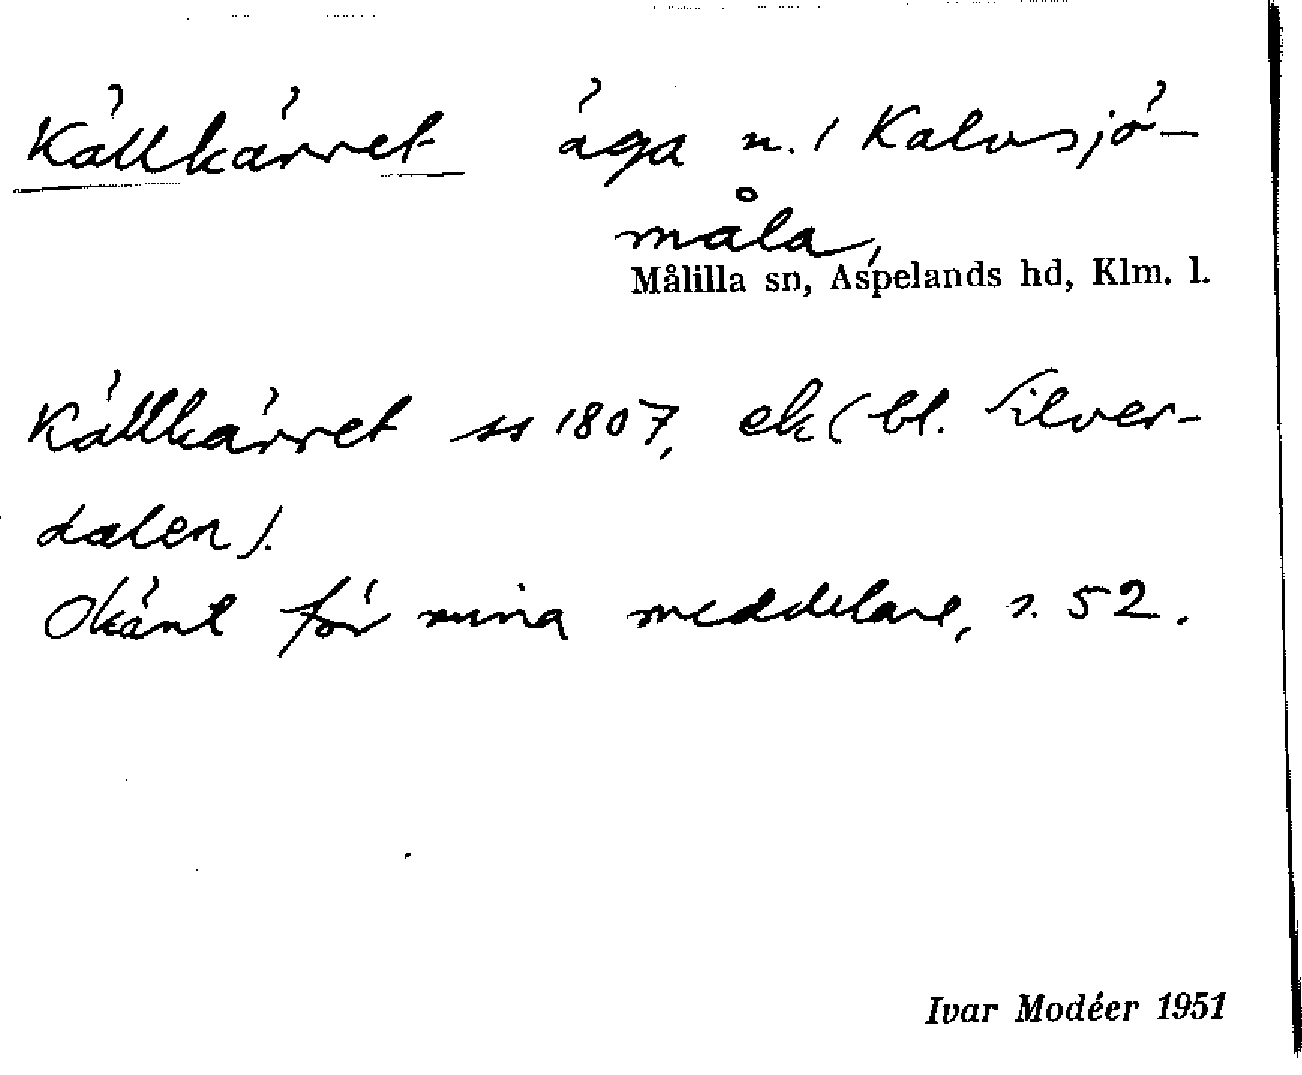 Källkärret äga n. / Kalvsjö-
måla,
Målilla sn, Aspelands hd, Klm. l.
Källkärret ss 1807, ek (bl. Silver-
dalen).
Okänt för mina meddelare, s. 52.
Ivar Modéer 1951